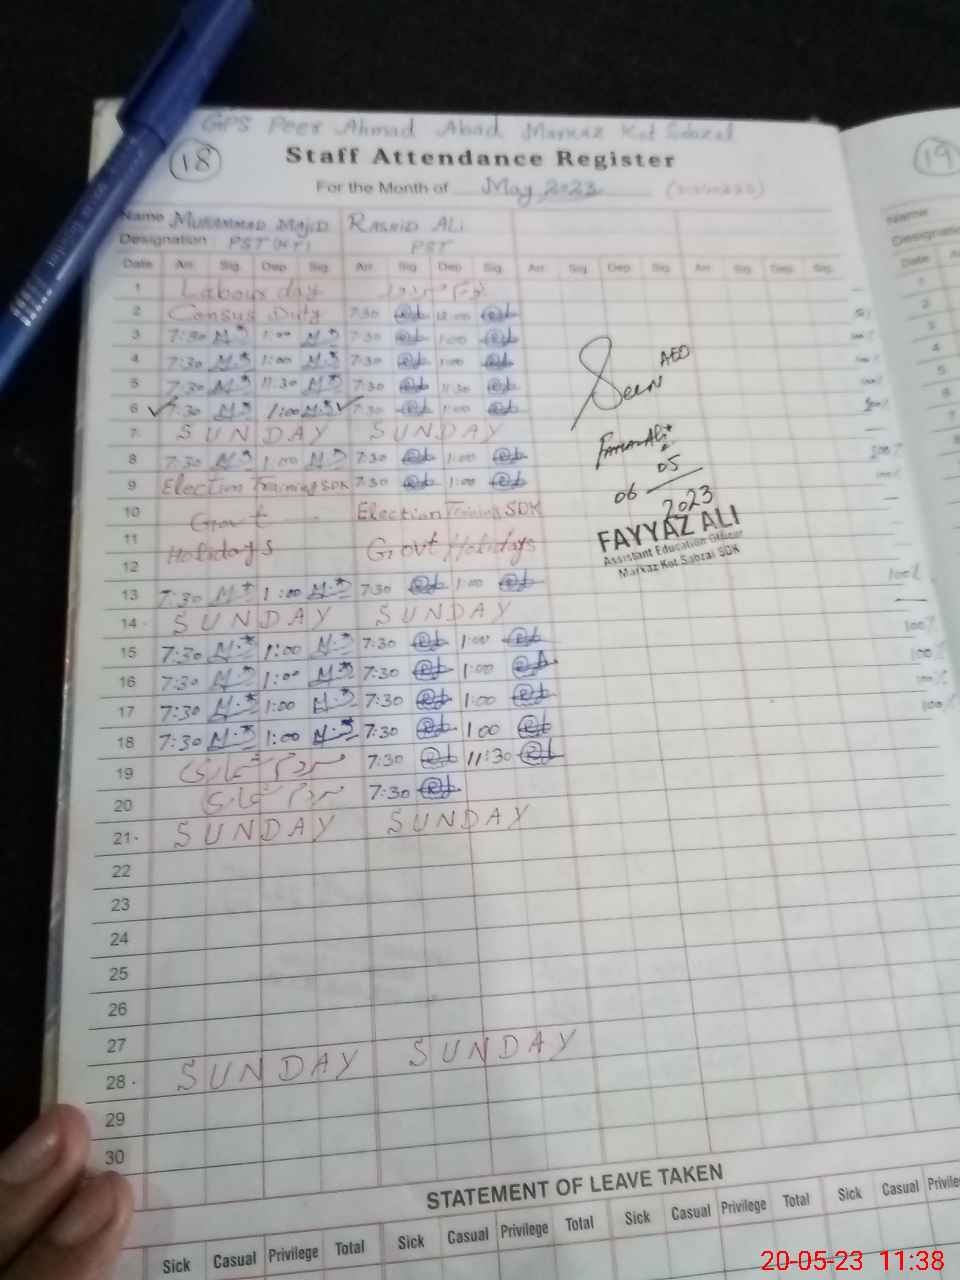 GPS Peer Ahmad Abad Markaz Kot Sabzal
18 Staff Attendance Register 19
For the Month of May 2023
Name Muhammad Majid Rashid Ali Name
Designation PST (HT) PST Designation
Date Arr. Sig. Dep. Sig. Arr. Sig. Dep. Sig. Arr. Sig. Dep. Sig. Arr. Sig. Dep. Sig. Date
1 Labour day یوم مزدور 1
2 Census Duty 7:30 12:00 2
3 7:30 M.J 1:00 M.J 7:30 1:00 3
4 7:30 M.J 1:00 M.J 7:30 1:00 4
5 7:30 M.J 11:30 M.J 7:30 11:30 5
6 7:30 M.J 1:00 M.J 7:30 1:00 6
7 SUNDAY SUNDAY 7
8 7:30 M.J 1:00 M.J 7:30 1:00 100% 8
9 Election Training SDK 7:30 1:00 9
10 Govt Election Training SDK 10
11 Holidays Govt Holidays
12
Seen AEO
Fayyaz Ali
06 05 2023
FAYYAZ ALI
Assistant Education Officer
Markaz Kot Sabzal SDK
13 7:30 M.J 1:00 M.J 7:30 1:00 100%
14 SUNDAY SUNDAY
15 7:30 M.J 1:00 M.J 7:30 1:00 100%
16 7:30 M.J 1:00 M.J 7:30 1:00 100%
17 7:30 M.J 1:00 M.J 7:30 1:00 100%
18 7:30 M.J 1:00 M.J 7:30 1:00 100%
19 مردم شماری 7:30 11:30
20 مردم شماری 7:30
21 SUNDAY SUNDAY
22
23
24
25
26
27
28 SUNDAY SUNDAY
29
30
STATEMENT OF LEAVE TAKEN
Sick Casual Privilege Total Sick Casual Privilege Total Sick Casual Privilege Total Sick Casual
20-05-23 11:38